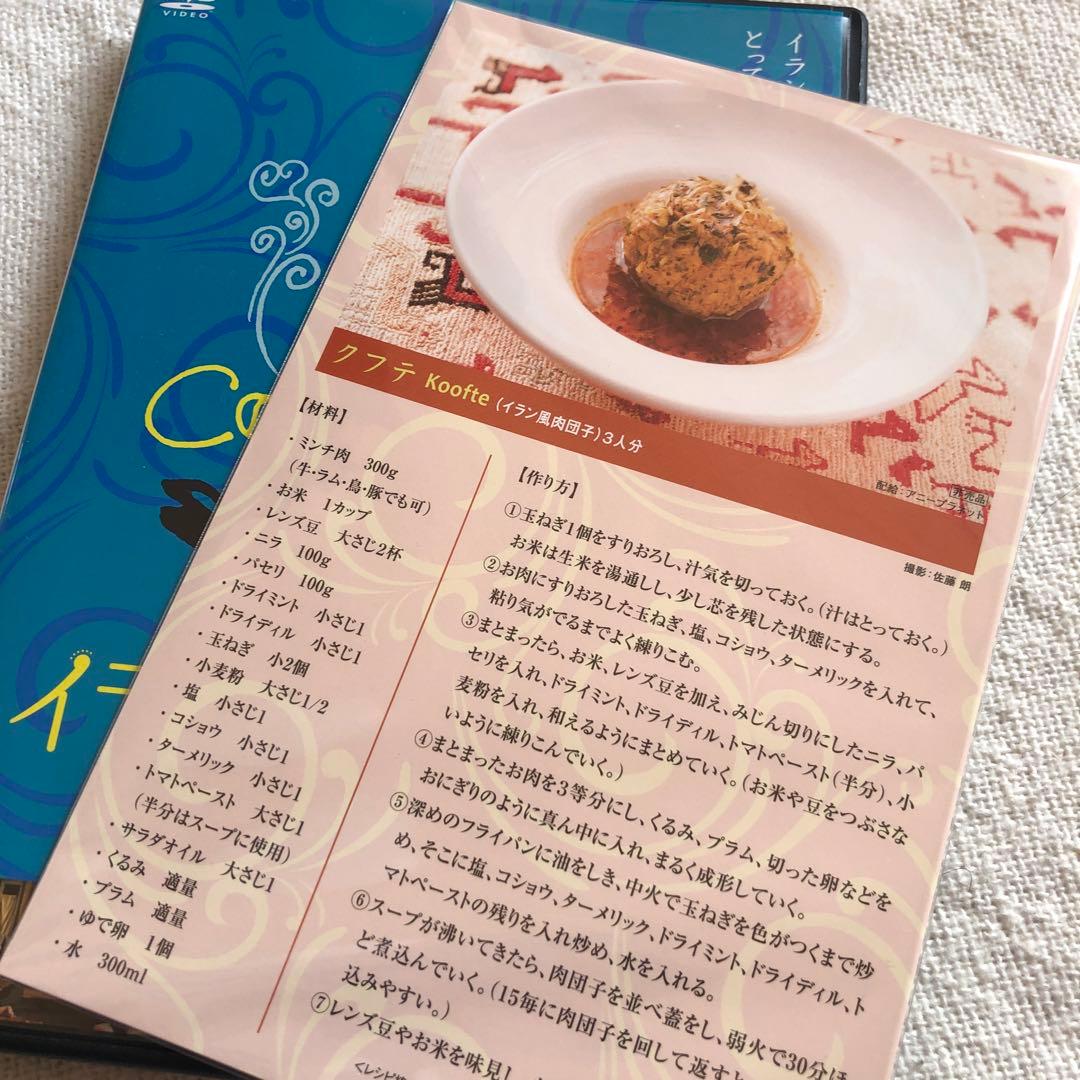 VIDEO
イラン
とって
Co
イラ
クフテ Koofte (イラン風肉団子)3人分
非売品
配給:アニープラネット
撮影:佐藤 朗
【材料】
・ミンチ肉 300g
(牛・ラム・鳥・豚でも可)
・お米 1カップ
・レンズ豆 大さじ2杯
・ニラ 100g
・パセリ 100g
・ドライミント 小さじ1
・ドライディル 小さじ1
・玉ねぎ 小2個
・小麦粉 大さじ1/2
・塩 小さじ1
・コショウ 小さじ1
・ターメリック 小さじ1
・トマトペースト 大さじ1
(半分はスープに使用)
・サラダオイル 大さじ1
・くるみ 適量
・プラム 適量
・ゆで卵 1個
・水 300ml
【作り方】
①玉ねぎ1個をすりおろし、汁気を切っておく。(汁はとっておく。)
お米は生米を湯通しし、少し芯を残した状態にする。
②お肉にすりおろした玉ねぎ、塩、コショウ、ターメリックを入れて、
粘り気がでるまでよく練りこむ。
③まとまったら、お米、レンズ豆を加え、みじん切りにしたニラ、パ
セリを入れ、ドライミント、ドライディル、トマトペースト(半分)、小
麦粉を入れ、和えるようにまとめていく。(お米や豆をつぶさな
いように練りこんでいく。)
④まとまったお肉を3等分にし、くるみ、プラム、切った卵などを
おにぎりのように真ん中に入れ、まるく成形していく。
⑤深めのフライパンに油をしき、中火で玉ねぎを色がつくまで炒
め、そこに塩、コショウ、ターメリック、ドライミント、ドライディル、ト
マトペーストの残りを入れ炒め、水を入れる。
⑥スープが沸いてきたら、肉団子を並べ蓋をし、弱火で30分ほ
ど煮込んでいく。(15毎に肉団子を回して返すと
込みやすい。)
⑦レンズ豆やお米を味見し
<レシピ